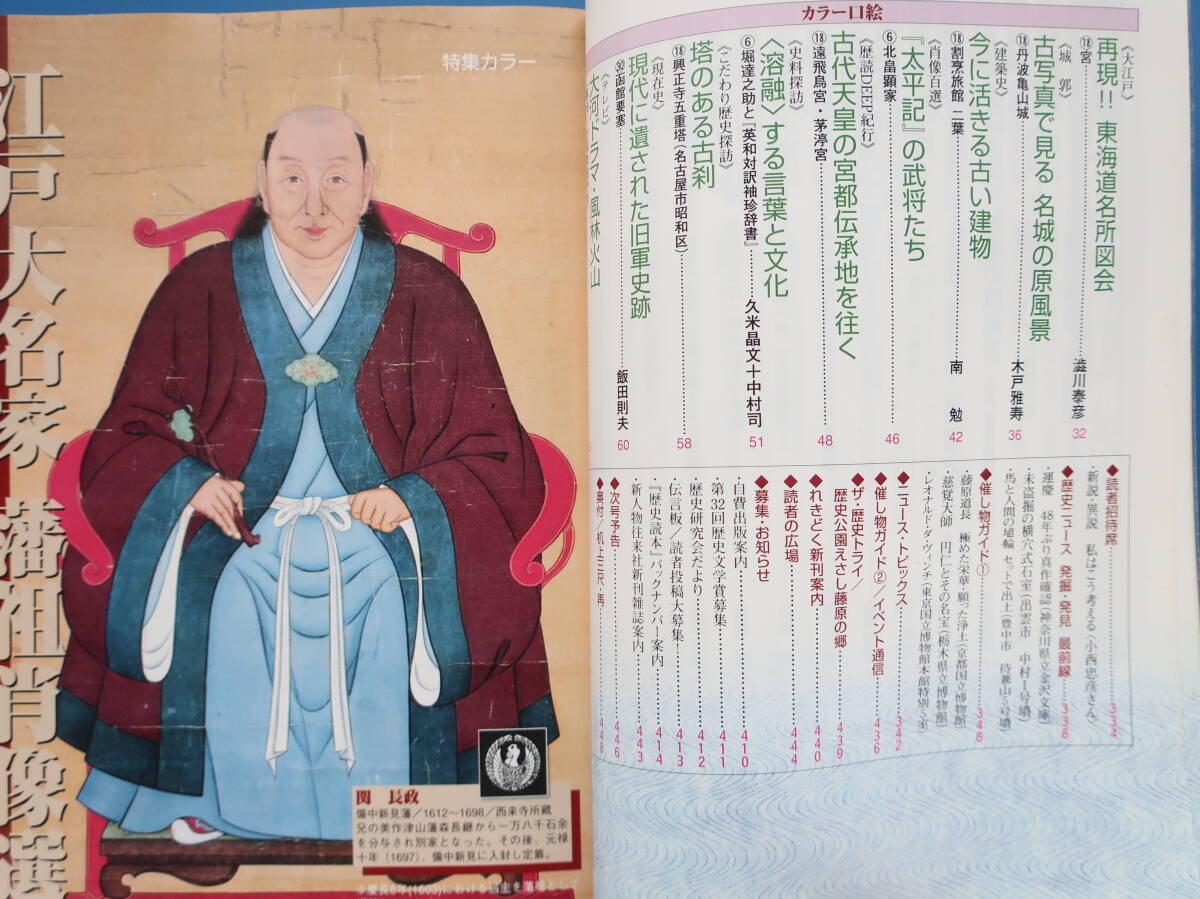 カラー口絵
《大江戸》
再現!! 東海道名所図会
⑱宮………澁川泰彦 32
《城 郭》
古写真で見る 名城の原風景
⑱丹波亀山城………木戸雅寿 36
《建築史》
今に活きる古い建物
⑱割烹旅館 二葉………南 勉 42
《肖像百選》
『太平記』の武将たち
⑥北畠顕家………46
《歴読DEEP紀行》
古代天皇の宮都伝承地を往く
⑱遠飛鳥宮・茅渟宮………48
《史料探訪》
〈溶融〉する言葉と文化
⑥堀達之助と『英和対訳袖珍辞書』………久米晶文十中村司 51
《こだわり歴史探訪》
塔のある古刹
⑱興正寺五重塔(名古屋市昭和区)………58
《現在史》
現代に遺された旧軍史跡
㉚函館要塞………飯田則夫 60
《テレビ》
大河ドラマ・風林火山
◆読者招待席………334
・新説・異説 私はこう考える〈小西忠彦さん〉
◆歴史ニュース 発掘・発見 最前線………336
・運慶 48年ぶり真作確認(神奈川県立金沢文庫)
・未盗掘の横穴式石室(出雲市 中村1号墳)
・馬と人間の埴輪 セットで出土(豊中市 待兼山5号墳)
◆催し物ガイド①………346
・藤原道長 極めた栄華・願った浄土(京都国立博物館)
・慈覚大師 円仁とその名宝(栃木県立博物館)
・レオナルド・ダ・ヴィンチ(東京国立博物館本館特別5室)
◆ニュース・トピックス………342
◆催し物ガイド②／イベント通信………436
◆ザ・歴史トライ／
歴史公園えさし藤原の郷………439
◆れきどく新刊案内………440
◆読者の広場………444
◆募集・お知らせ
・自費出版案内………410
・第32回歴史文学賞募集………411
・歴史研究会だより………412
・伝言板／読者投稿大募集!………413
・『歴史読本』バックナンバー案内………414
・新人物往来社新刊雑誌案内………443
◆次号予告………446
448
特集カラー
江戸大名家 藩祖肖像選
関 長政
備中新見藩／1612～1698／西来寺所蔵
兄の美作津山藩森長継から一万八千石余
を分与され別家となった。その後、元禄
十年(1697)、備中新見に入封し定着。
※慶長8年(1603)における藩主を藩祖として